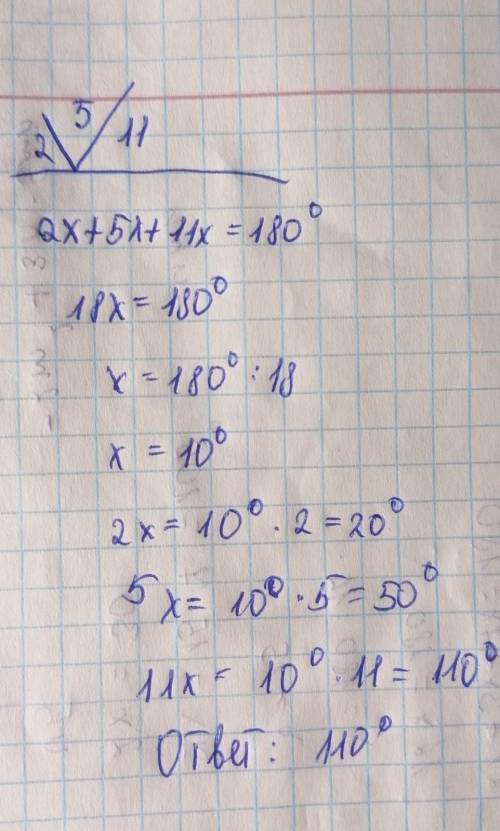 2 5 11
2x+5x+11x=180°
18x=180°
x=180°:18
x=10°
2x=10°·2=20°
5x=10°·5=50°
11x=10°·11=110°
Ответ: 110°